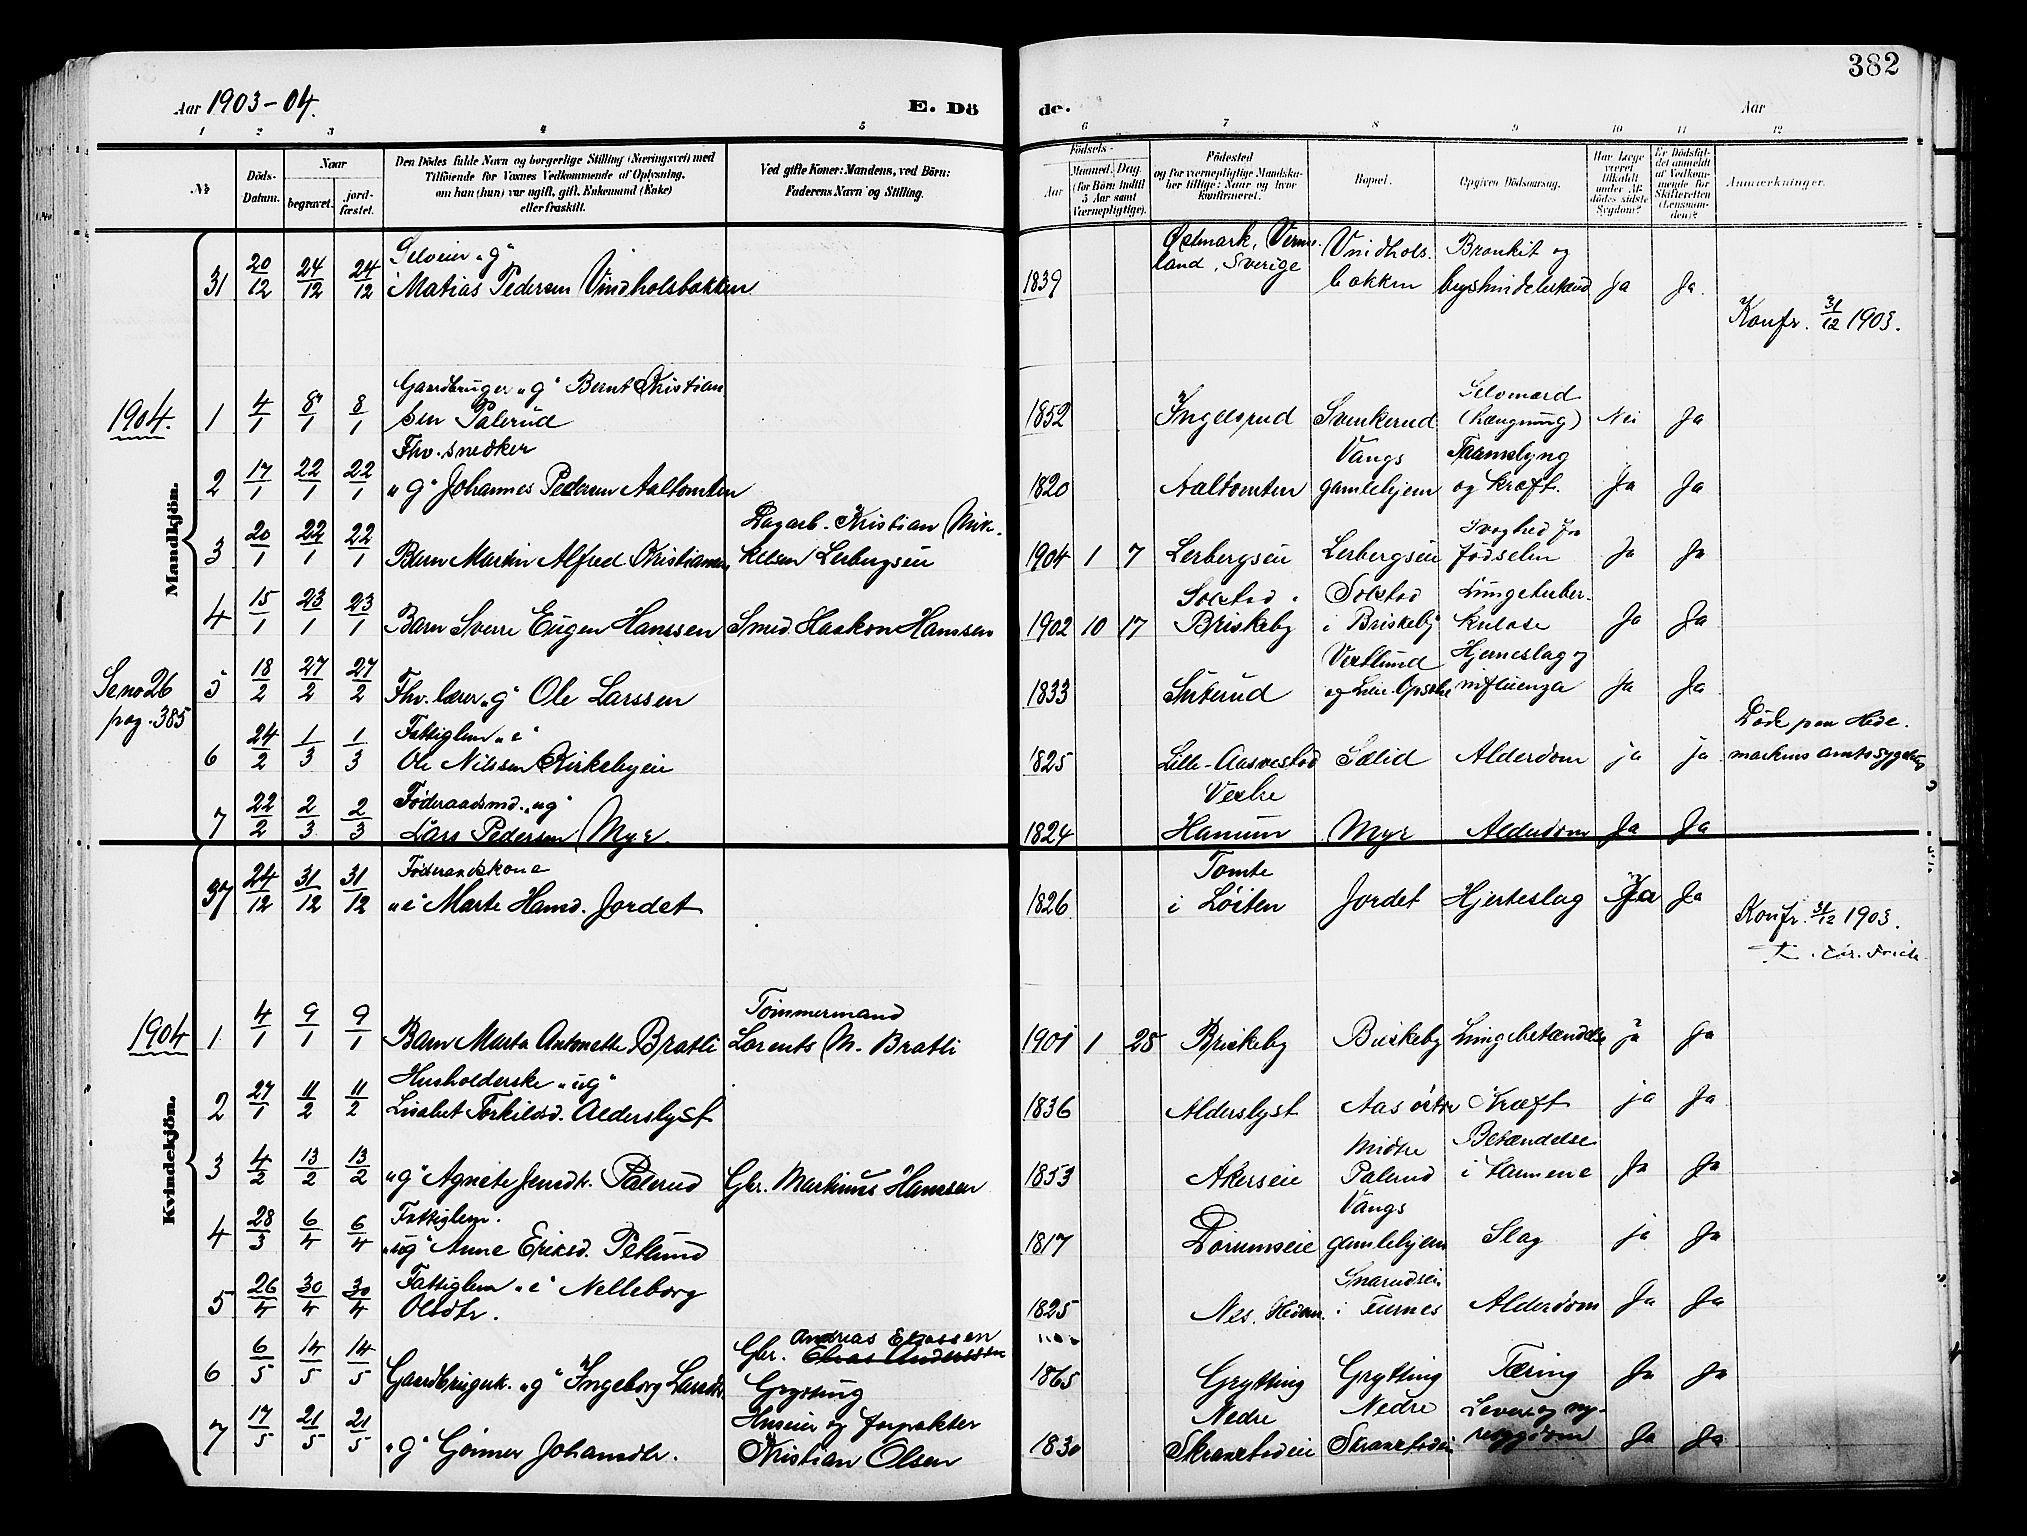 382
Aar 1903-04.
E. Dö
de.
Aar
1 2 3 4 5 6 7 8 9 10 11 12
№
Döds-
Datum.
Naar
begravet.
jord-
fæstet.
Den Dödes fulde Navn og borgerlige Stilling (Næringsvei) med
Tilföiende for Voxnes Vedkommende af Oplysning,
om han (hun) var ugift, gift, Enkemand (Enke)
eller fraskilt.
Ved gifte Koner: Mandens, ved Börn:
Faderens Navn og Stilling.
Födsels-
Aar
Maaned. Dag
(for Börn indtil
5 Aar samt
Værnepligtige).
Födested
og for værnepligtige Mandska-
ber tillige: Naar og hvor
konfirmeret.
Bopæl.
Opgiven Dödsaarsag.
Har Læge
været
tilkaldt
under Af-
dödes sidste
Sygdom?
Er Dödsfal-
det anmeldt
af Vedkom-
mende for
Skifteretten
(Lensman-
den)?
Anmærkninger.
Mandkjön.
31 20/12 24/12 24/12 Selveier "g"
Matias Pedersen Vindholsbakken
1839 Østmark, Verm-
land, Sverige
Vindhols-
bakken
Bronkit og
Ja Ja
Konfr. 31/12 1903.
1904.
1 4/1 8/1 8/1 Gaardbruger "g" Bernt Kristian-
sen Palerud
1852 Ingelsrud Svenkerud Selvmord
(Hængning) Nei Ja
2 17/1 22/1 22/1 Fhv. snedker
"g" Johannes Pedersen Aaltomten
1820 Aaltomten Vangs
gamlehjem
Tarmslyng
og kræft. Ja Ja
3 20/1 22/1 22/1 Barn Martin Alfred Kristiansen
Dagarb. Kristian Mik-
kelsen Lerbergseie
1904 1 7 Lerbergseie Lerbergseie Svaghed fra
fødselen Ja Ja
4 15/1 23/1 23/1 Barn Sverre Eugen Hanssen Smed. Haakon Hanssen
1902 10 17 Solstad i
Briskeby
Solstad
i Briskeby
Lungetuber-
kulose Ja Ja
Se no 26
pag. 385
5 18/2 27/2 27/2 Fhv. lærer "g" Ole Larssen
1833 Sviterud Vestlund
Hjerneslag og
influenza Ja Ja
6 24/2 1/3 1/3 Fattiglem "e"
Ole Nilssen Kirkebyeie
1825 Lille-Aasvestad Sælid Alderdom ja ja
Døde paa Hede-
markens amts sygehus
7 22/2 2/3 2/3 Føderaadsmd. "ug"
Lars Pedersen Myr.
1824 Vestre
Hanum Myr Alderdom Ja Ja
Kvindekjön.
37 24/12 31/12 31/12 Føderaadskone
"e" Marte Hansd. Jordet
1826 Tomte
i Løiten Jordet Hjerteslag Ja Ja
Konfr. 31/12 1903.
1904
1 4/1 9/1 9/1 Barn Marta Antonette Bratli
Tømmermand
Lorents M. Bratli
1901 1 28 Briskeby Briskeby Lungebetændelse ja Ja
2 27/1 11/2 11/2 Husholderske "ug"
Lisabet Torkilsd. Alderslyst
1836 Alderslyst Aas østre Kræft ja Ja
3 4/2 13/2 13/2 "g" Agnete Jensdtr. Palerud Gbr. Martinus Hanssen
1853 Akerseie Midtre
Palerud
Betændelse
i tarmene Ja Ja
4 28/3 6/4 6/4 Fattiglem.
"ug" Anne Eriksd. Petlund
1817 Dorumseie Vangs
gamlehjem Slag ja Ja
5 26/4 30/4 30/4 Fattiglem "e" Nelleborg
Olsdtr.
1825 Nes, Hedem. Snarudseie
i Furnes Alderdom Ja Ja
6 6/5 14/5 14/5 Gaardbrugerk. "g" Ingeborg Larsdtr.
Andreas Eliassen
Gbr. Elias Anderssen
Grytting
1865 Grytting Grytting Tæring Ja Ja
7 17/5 21/5 21/5 "g" Gønner Johannsdtr.
Huseier og forpakter
Kristian Olsen
1830 Nedre
Skraastadeie
Nedre
Skraastadeie
Lever og ny-
resygdom Ja Ja